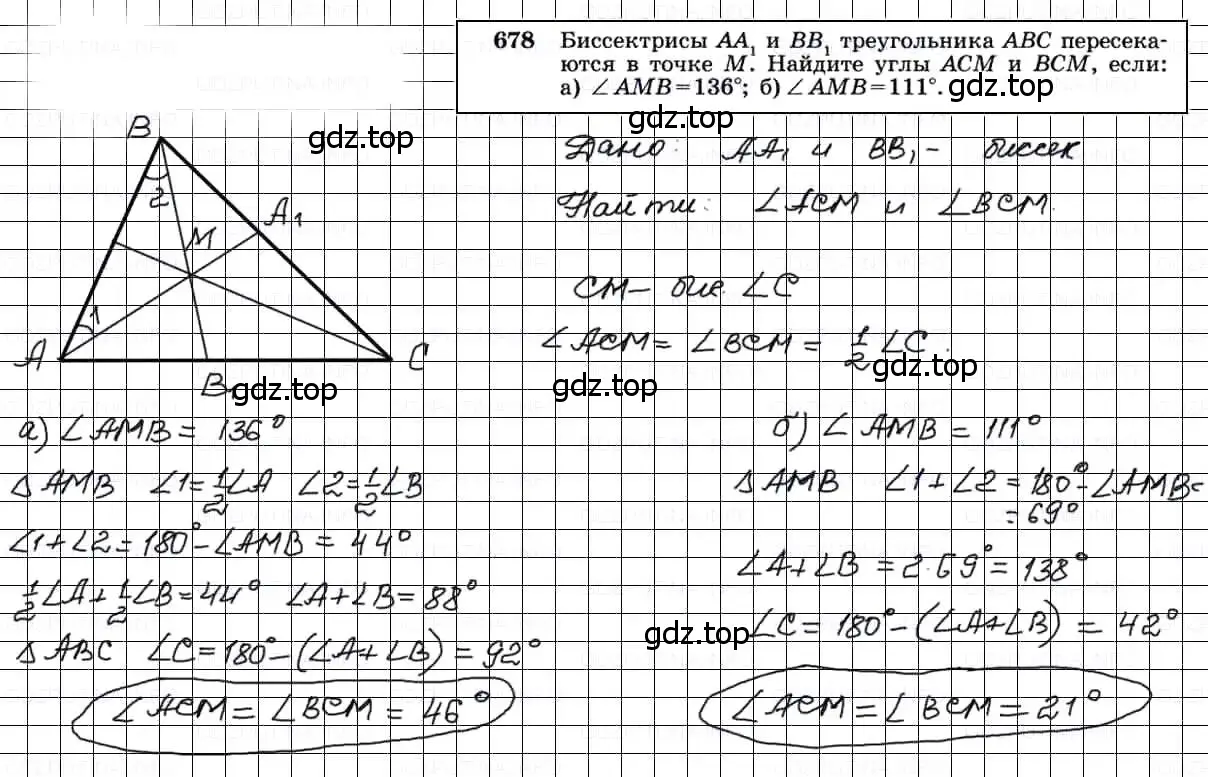 678 Биссектрисы AA₁ и BB₁ треугольника ABC пересека-
ются в точке M. Найдите углы ACM и BCM, если:
а) ∠AMB=136°; б) ∠AMB=111°.
gdz.top
gdz.top
gdz.top
B
2
A₁
M
1
A
B₁
C
gdz.top
Дано: AA₁ и BB₁ - биссек
Найти: ∠ACM и ∠BCM.
CM - бис. ∠C
∠ACM = ∠BCM = 1/2 ∠C.
gdz.top
gdz.top
а) ∠AMB = 136°
△ AMB ∠1=1/2∠A ∠2=1/2∠B
∠1+∠2=180°-∠AMB = 44°
1/2∠A+1/2∠B=44° ∠A+∠B=88°
△ ABC ∠C=180°-(∠A+∠B)=92°
∠ACM = ∠BCM = 46°
б) ∠AMB = 111°
△ AMB ∠1+∠2=180°-∠AMB=
=69°
∠A+∠B = 2·69°=138°
gdz.top
∠C=180°-(∠A+∠B) = 42°
∠ACM=∠BCM=21°